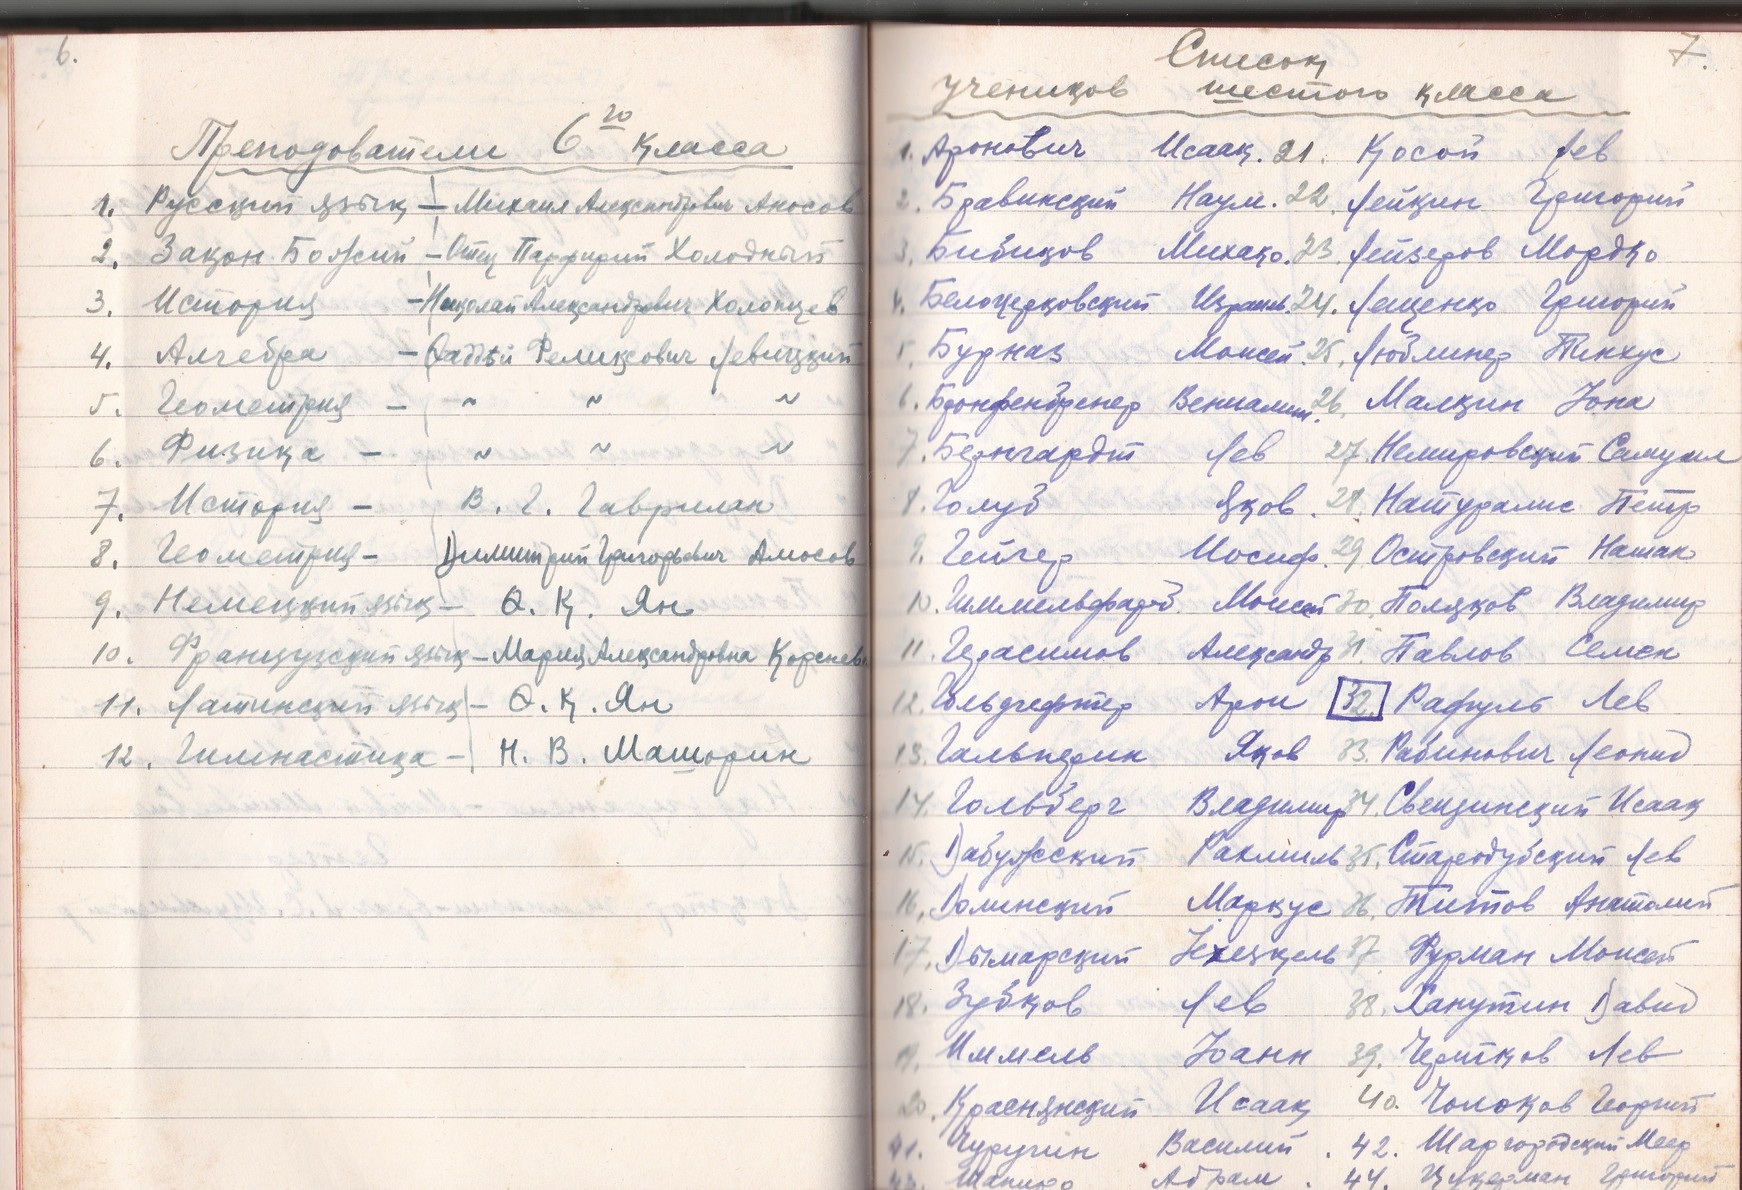 6.
Преподователи 6го класса
1. Русский язык — Михаил Александрович Аносов
2. Закон Божий — Отец Парфирий Холодный
3. История — Николай Александрович Холопцев
4. Алгебра — Фаддѣй Феликсович Левицкий
5. Геометрия — ~ ~ ~
6. Физика — ~ ~ ~
7. История — В. Г. Гаврилан
8. Геометрия — Димитрий Григорьевич Амосов
9. Немецкий язык — Ф. К. Ян
10. Французский язык — Мария Александровна
11. Латинский язык — Ф. К. Ян
12. Гимнастика — Н. В. Машорин
7.
Список
учеников шестого класса
1. Аронович Исаак. 21. Косой Лев
2. Бравинский Наум. 22. Лейкин Григорий
3. Бибиков 23. Лейзеров Мордко
4. Белоцерковский Израиль 24. Лещенко Григорий
5. Бурназ Моисей 25. Люблинер Пинхус
6. Бронфенбренер Вениамин. 26. Малкин Иона
7. Бернгардт Лев 27. Немировский Самуил
8. Голуб Яков. 28. Натуралис Петр
9. Гейгер Иосиф. 29 Островский Натан
10. Гиммельфарб. Моисей 30. Поляков Владимир
11. Герасимов Александр 31. Павлов Семен
12. Арон 32. Рафуль Лев
13. Гальперин Яков 33. Рабинович Леонид
14. Гольберг Владимир 34. Свенцинский Исаак
15. Дабужский Рахмиль 35. Стародубский Лев
16. Долинский Маркус 36. Титов Анатолий
17. Дымарский Иехецкель 37. Фурман Моисей
18. Зубков Лев 38. Ханутин Давид
19. Иммель Иоанн 39. Чертков Лев
20. Краснянский Исаак 40. Чолоков Георгий
41. Чуругин Василий. 42. Шаргородский Меер
43. Шапиро Абрам. 44. Цукерман Григорий